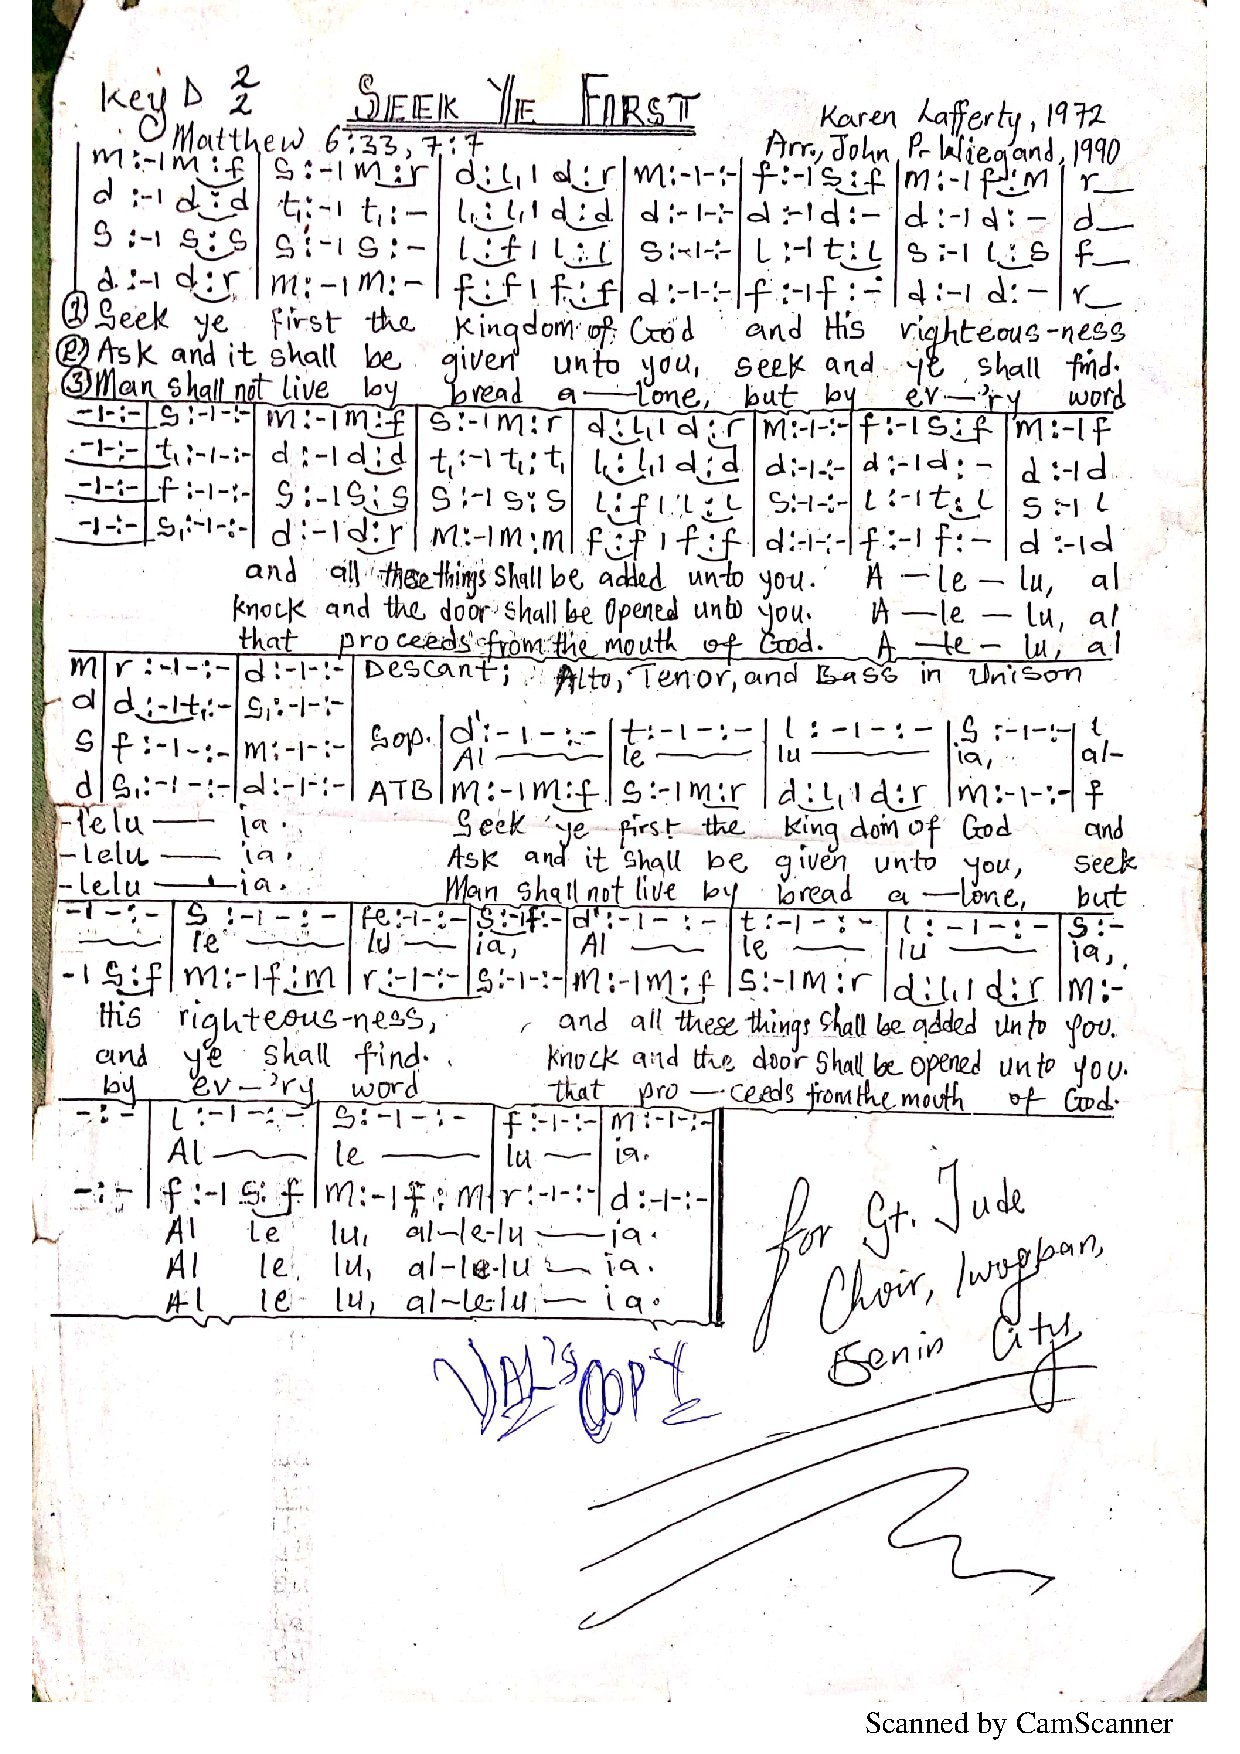 Key D 2/2 SEEK YE FIRST
Karen Lafferty, 1972
Matthew 6:33, 7:7
Arr., John P. Wiegand, 1990
m:-|m:f | s:-|m:r | d:l₁|d:r | m:-|-:- | f:-|s:f | m:-|f:m | r__
d:-|d:d | t₁:-|t₁:- | l₁:l₁|d:d | d:-|-:- | d:-|d:- | d:-|d:- | d__
s:-|s:s | s:-|s:- | l:f|l:l | s:-|-:- | l:-|t:l | s:-|l:s | f__
d:-|d:r | m:-|m:- | f:f|f:f | d:-|-:- | f:-|f:- | d:-|d:- | r__
① Seek ye first the kingdom of God and His righteous-ness
② Ask and it shall be given unto you, seek and ye shall find.
③ Man shall not live by bread a—lone, but by ev—'ry word
-|-:- | s:-|-:- | m:-|m:f | s:-|m:r | d:l₁|d:r | m:-|-:- | f:-|s:f | m:-|f
-|-:- | t₁:-|-:- | d:-|d:d | t₁:-|t₁:t₁ | l₁:l₁|d:d | d:-|-:- | d:-|d:- | d:-|d
-|-:- | f:-|-:- | s:-|s:s | s:-|s:s | l:f|l:l | s:-|-:- | l:-|t:l | s:-|l
-|-:- | s₁:-|-:- | d:-|d:r | m:-|m:m | f:f|f:f | d:-|-:- | f:-|f:- | d:-|d
and all these things shall be added unto you. A—le—lu, al
knock and the door shall be opened unto you. A—le—lu, al
that proceeds from the mouth of God. A—le—lu, al
m | r:-|-:- | d:-|-:- | Descant; Alto, Tenor, and Bass in Unison
d | d:-|t₁:- | s₁:-|-:-
s | f:-|-:- | m:-|-:- | Sop. | d':-|-:- | t:-|-:- | l:-|-:- | s:-|-:- | l
Al—— le—— lu—— ia, al-
d | s₁:-|-:- | d:-|-:- | ATB | m:-|m:f | s:-|m:r | d:l₁|d:r | m:-|-:- | f
-lelu—— ia. Seek ye first the king dom of God and
-lelu—— ia. Ask and it shall be given unto you, seek
-lelu——ia. Man shall not live by bread a—lone, but
-|-:- | s:-|-:- | fe:-|-:- | s:-|f:- | d':-|-:- | t:-|-:- | l:-|-:- | s:-
—— le—— lu—— ia, Al—— le—— lu—— ia,
-|s:f | m:-|f:m | r:-|-:- | s:-|-:- | m:-|m:f | s:-|m:r | d:l₁|d:r | m:-
His righteous-ness, and all these things shall be added unto you.
and ye shall find. knock and the door shall be opened unto you.
by ev—'ry word that pro—ceeds from the mouth of God.
-:- | l:-|-:- | s:-|-:- | f:-|-:- | m:-|-:-
Al—— le—— lu— ia.
-:- | f:-|s:f | m:-|f:m | r:-|-:- | d:-|-:-
Al le lu, al-le-lu——ia.
Al le lu, al-le-lu— ia.
Al le lu, al-le-lu— ia.
for St. Jude
Choir, Iwogban,
Benin City
VAL'S COPY
Scanned by CamScanner